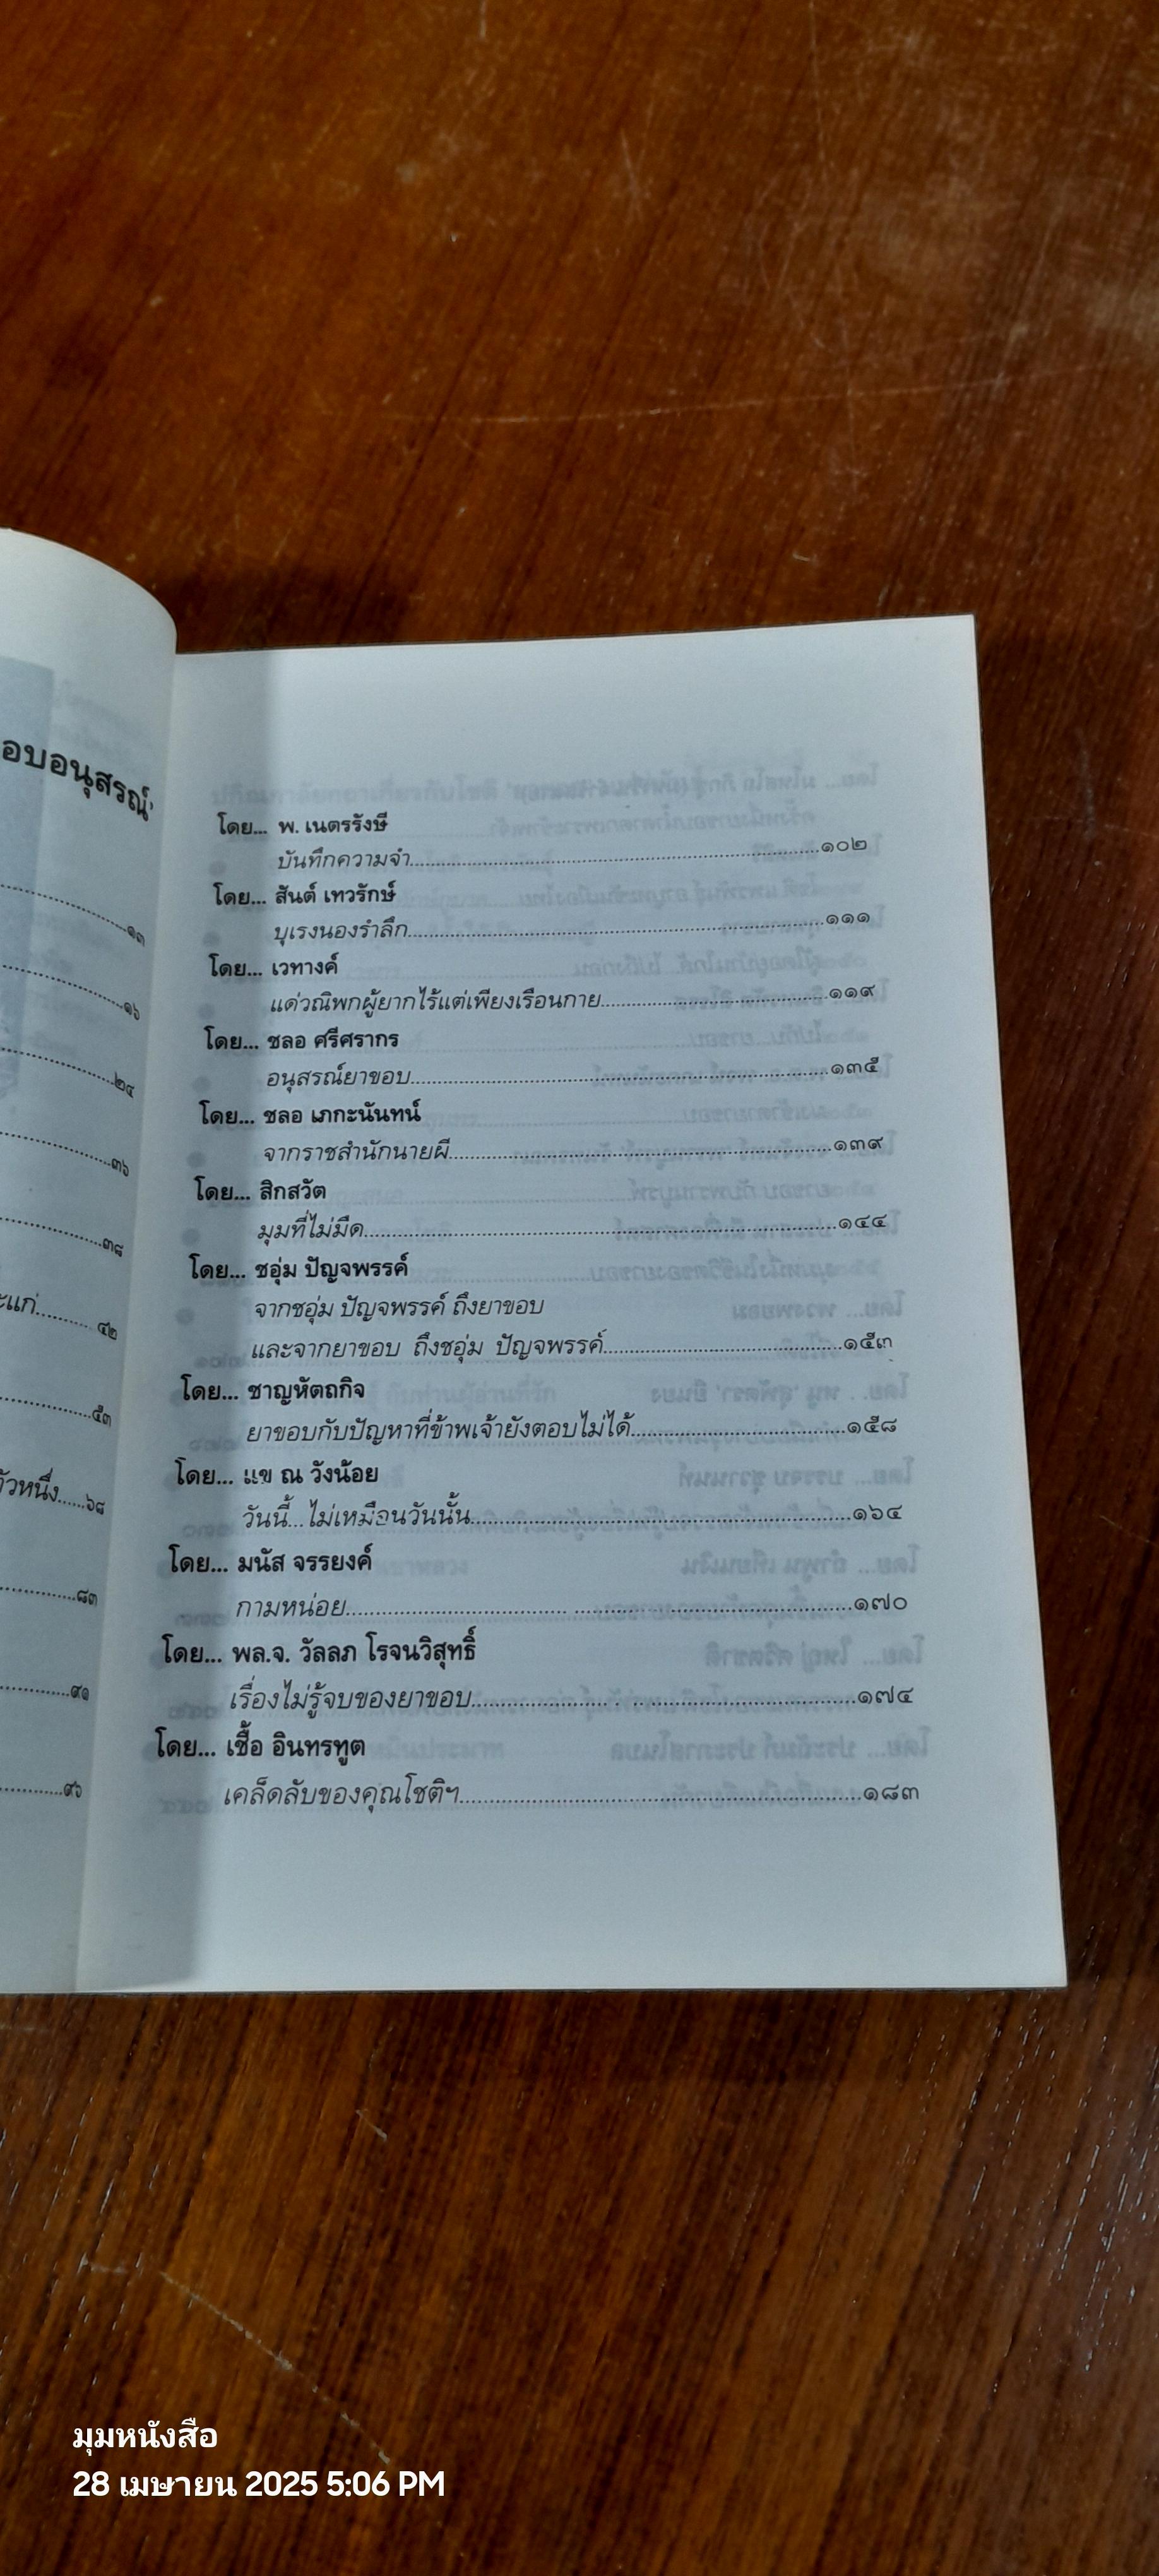 อบอนุสรณ์'
๑๓
๑๖
๒๔
๓๖
๓๘
ะแก่........๔๒
๕๓
ัวหนึ่ง......๖๘
๘๓
๙๑
๙๖
โดย... พ. เนตรรังษี
บันทึกความจำ........๑๐๒
โดย... สันต์ เทวรักษ์
บุเรงนองรำลึก........๑๑๑
โดย... เวทางค์
แด่วณิพกผู้ยากไร้แต่เพียงเรือนกาย........๑๑๙
โดย... ชลอ ศรีศรากร
อนุสรณ์ยาขอบ........๑๓๕
โดย... ชลอ เภกะนันทน์
จากราชสำนักนายผี........๑๓๙
โดย... สิกสวัต
มุมที่ไม่มืด........๑๔๔
โดย... ชอุ่ม ปัญจพรรค์
จากชอุ่ม ปัญจพรรค์ ถึงยาขอบ
และจากยาขอบ ถึงชอุ่ม ปัญจพรรค์........๑๕๓
โดย... ชาญหัตถกิจ
ยาขอบกับปัญหาที่ข้าพเจ้ายังตอบไม่ได้........๑๕๘
โดย... แข ณ วังน้อย
วันนี้...ไม่เหมือนวันนั้น........๑๖๔
โดย... มนัส จรรยงค์
กามหน่อย........๑๗๐
โดย... พล.จ. วัลลภ โรจนวิสุทธิ์
เรื่องไม่รู้จบของยาขอบ........๑๗๔
โดย... เชื้อ อินทรทูต
เคล็ดลับของคุณโชติฯ........๑๘๓
มุมหนังสือ
28 เมษายน 2025 5:06 PM